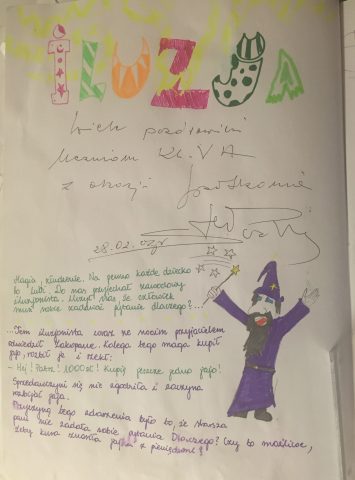 ILUZJA
Wiele pozdrowień
Uczniom kl. VA
z okazji Spotkania
28.02.02r
Magia, złudzenie. Na pewno każde dziecko
to lubi. Do nas przyjechał zawodowy
iluzjonista. Uczył nas, że człowiek
musi sobie zadawać pytanie dlaczego?...
...Ten iluzjonista wraz ze swoim przyjacielem
odwiedził Zakopane. Kolega tego maga kupił
jajo, rozbił je i rzekł:
- Hej! Patrz! 100zł! Kupię jeszcze jedno jajo!
Sprzedawczyni się nie zgodziła i zaczęła
rozbijać jaja.
Przyczyną tego zdarzenia było to, że starsza
pani nie zadała sobie pytania Dlaczego? Czy to możliwe,
żeby kura zniosła jajka z pieniędzmi?